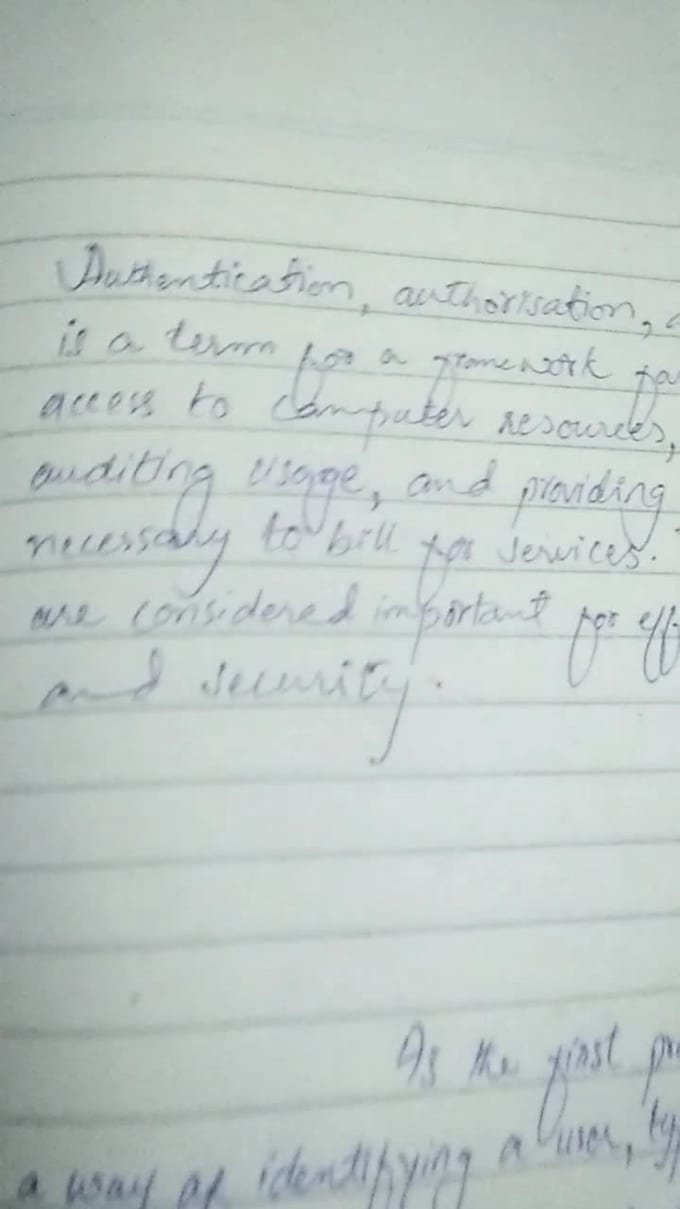 Authentication, authorisation,
is a term for a framework
access to computer resources,
auditing usage, and providing
necessary to bill for services.
are considered important for
and security.
As the first
a way of identifying a user,